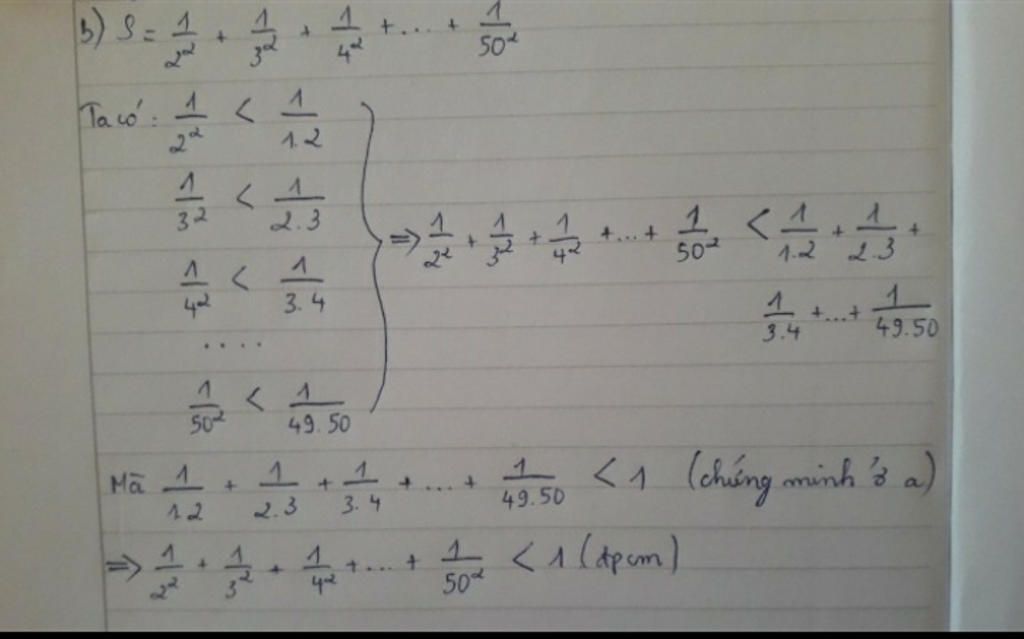 b) S = 1/2² + 1/3² + 1/4² + ... + 1/50²
Ta có: 1/2² < 1/1.2
1/3² < 1/2.3
1/4² < 1/3.4
....
1/50² < 1/49.50
=> 1/2² + 1/3² + 1/4² + ... + 1/50² < 1/1.2 + 1/2.3 +
1/3.4 + ... + 1/49.50
Mà 1/1.2 + 1/2.3 + 1/3.4 + ... + 1/49.50 < 1 (chứng minh ở a)
=> 1/2² + 1/3² + 1/4² + ... + 1/50² < 1 (đpcm)